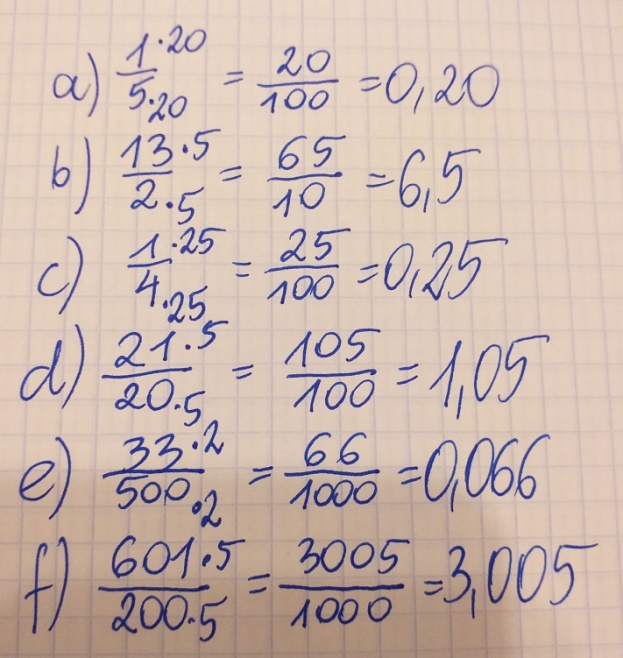 a) 1·20/5·20 = 20/100 = 0,20
b) 13·5/2·5 = 65/10 = 6,5
c) 1·25/4·25 = 25/100 = 0,25
d) 21·5/20·5 = 105/100 = 1,05
e) 33·2/500·2 = 66/1000 = 0,066
f) 601·5/200·5 = 3005/1000 = 3,005